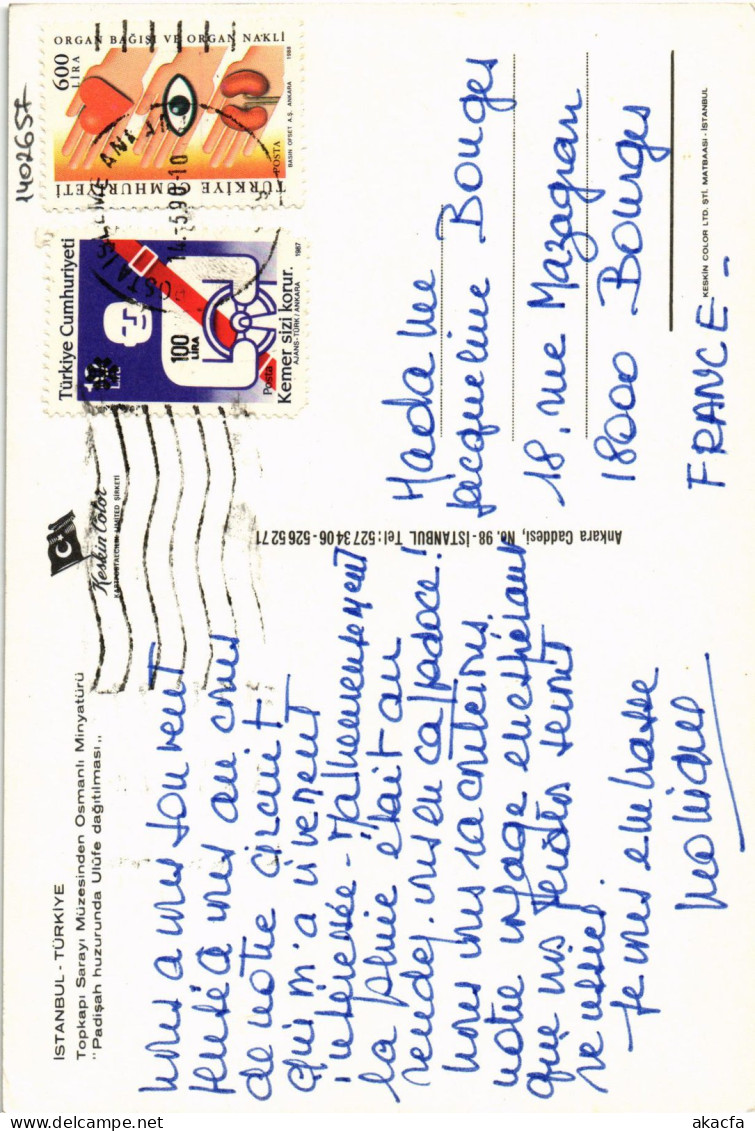 ISTANBUL - TÜRKİYE
Topkapı Sarayı Müzesinden Osmanlı Minyatürü
"Padişah huzurunda Ulûfe dağıtılması,,
Keskin Color
KARTPOSTALCILIK LIMITED ŞİRKETİ
nous avons souvent
pensé à vous au cours
de notre circuit
qui m'a vivement
intéressée - Malheureusement
la pluie était au
rendez-vous en Cappadoce!
nous vous raconterons
notre voyage en espérant
que nos photos seront
réussies.
Je vous embrasse
Monique
Ankara Caddesi, No. 98 - İSTANBUL Tel: 527 34 06 - 526 52 71
1402657
ORGAN BAĞIŞI VE ORGAN NAKLİ
600
LİRA
POSTA
TÜRKİYE CUMHURİYETİ
BASIN OFSET A.Ş. ANKARA 1988
Türkiye Cumhuriyeti
100
LİRA
Posta
Kemer sizi korur.
AJANS-TÜRK/ANKARA 1987
14.5.90-10
Madame
Jacqueline Bourges
18, rue Mazagran
18000 Bourges
FRANCE -
KESKİN COLOR LTD. ŞTİ. MATBAASI - İSTANBUL
akacfa